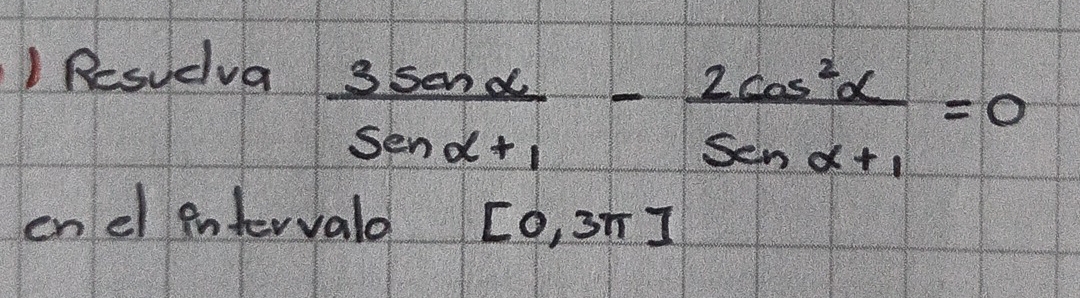 ) Resuelva 3 sen α / sen α + 1 - 2 cos² α / sen α + 1 = 0
en el intervalo [0, 3π]